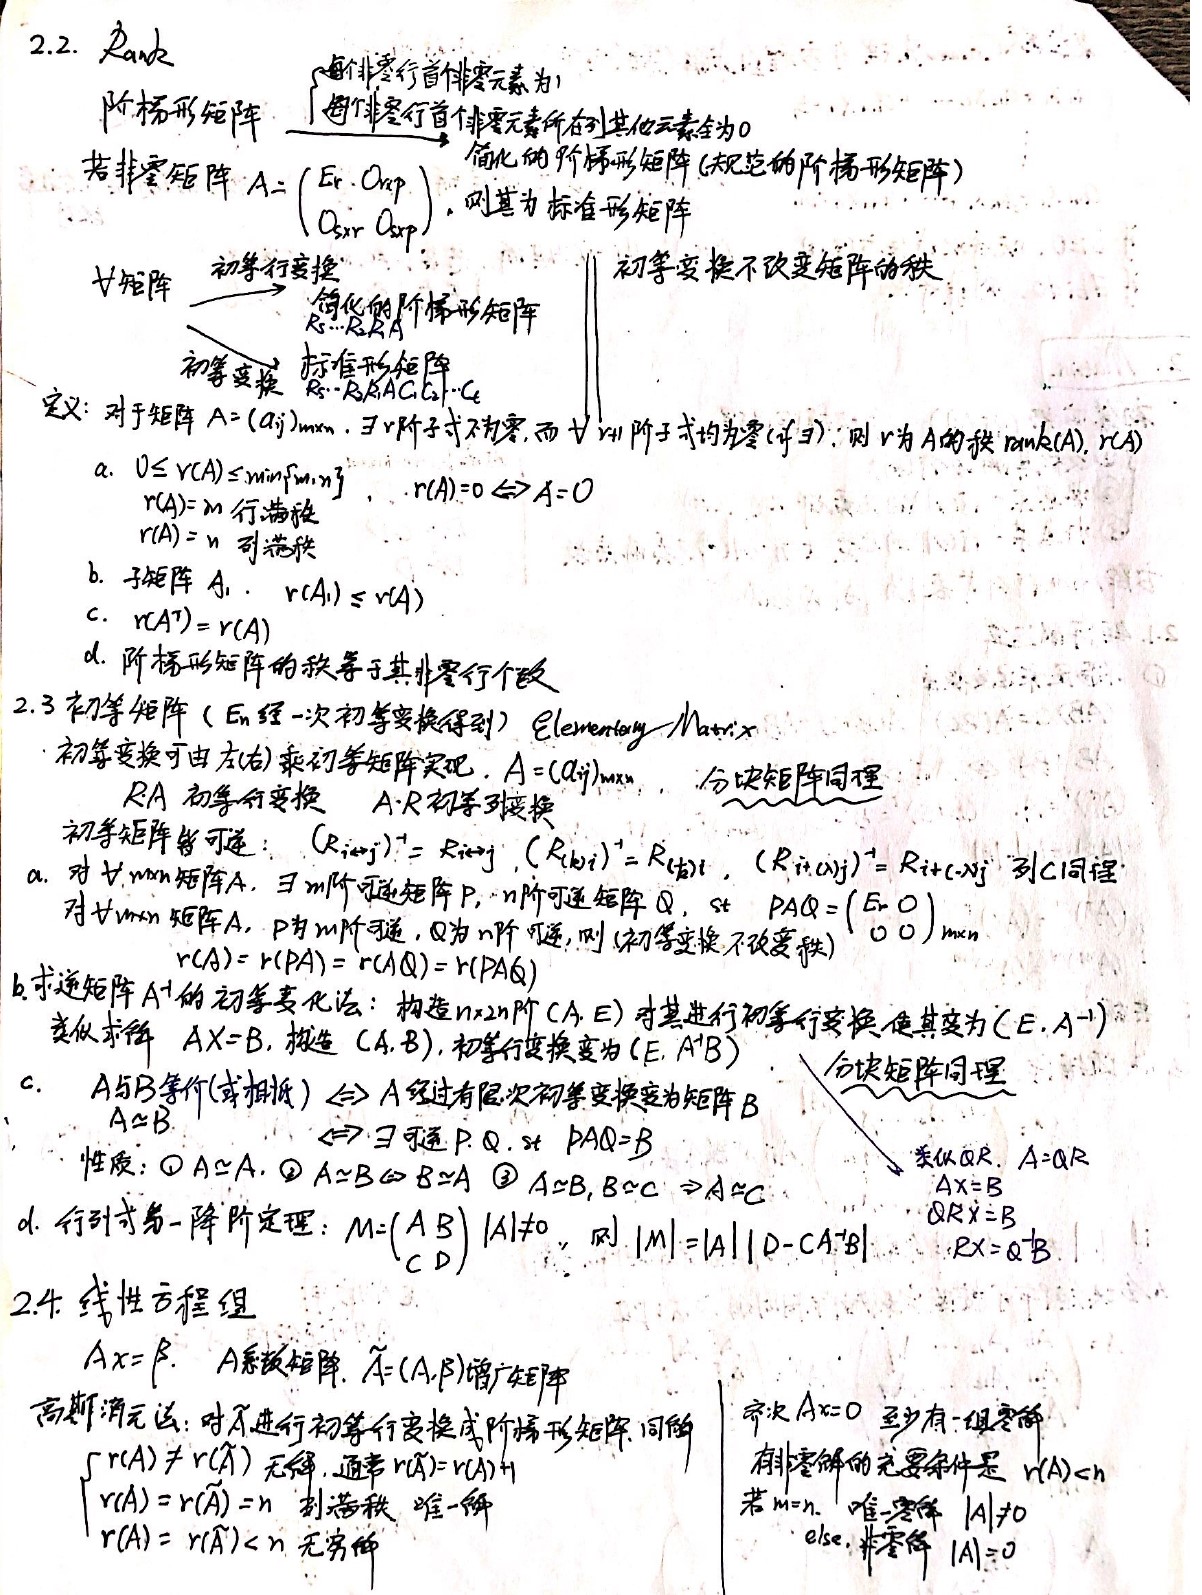 2.2. Rank
阶梯形矩阵 每个非零行首个非零元素为1
每个非零行首个非零元素所在列其他元素全为0
简化的阶梯形矩阵(规范的阶梯形矩阵)
若非零矩阵 A=(Er Orxp
Osxr Osxp), 则其为标准形矩阵
∀矩阵 初等行变换 简化的阶梯形矩阵
Rs…R2R1A
初等变换 标准形矩阵
Rs…R2R1AC1C2…Ct
初等变换不改变矩阵的秩
定义: 对于矩阵 A=(aij)mxn. ∃ r阶子式不为零, 而 ∀ r+1阶子式均为零(if ∃). 则 r为A的秩 rank(A). r(A)
a. 0≤r(A)≤min{m,n}, r(A)=0 ⇔ A=O
r(A)=m 行满秩
r(A)=n 列满秩
b. 子矩阵 A1. r(A1)≤r(A)
c. r(Aᵀ)=r(A)
d. 阶梯形矩阵的秩等于其非零行个数
2.3 初等矩阵(En经一次初等变换得到) Elementary Matrix
初等变换可由左(右)乘初等矩阵实现. A=(aij)mxn. 分块矩阵同理
R·A 初等行变换 A·R 初等列变换
初等矩阵皆可逆: (Ri↔j)⁻¹=Ri↔j, (R(k)i)⁻¹=R(1/k)i, (Ri+(λ)j)⁻¹=Ri+(-λ)j 列C同理
a. 对∀mxn矩阵A, ∃ m阶可逆矩阵P, n阶可逆矩阵Q, st PAQ=(Er O
O O)mxn
对∀mxn矩阵A, P为m阶可逆, Q为n阶可逆, 则(初等变换不改变秩)
r(A)=r(PA)=r(AQ)=r(PAQ)
b. 求逆矩阵A⁻¹的初等变化法: 构造nx2n阶(A. E) 对其进行初等行变换, 使其变为(E. A⁻¹)
类似求解 AX=B, 构造 (A. B), 初等行变换变为(E. A⁻¹B)
分块矩阵同理
类似QR. A=QR
AX=B
QRX=B
RX=Q⁻¹B
c. A与B等价(或相抵) ⇔ A经过有限次初等变换变为矩阵B
A≃B ⇔ ∃可逆P.Q. st PAQ=B
性质: ① A≃A. ② A≃B⇔B≃A ③ A≃B, B≃C ⇒A≃C
d. 行列式第一降阶定理: M=(A B
C D) |A|≠0, 则 |M|=|A||D-CA⁻¹B|
2.4. 线性方程组
Ax=β. A系数矩阵. Ã=(A,β)增广矩阵
高斯消元法: 对Ã进行初等行变换成阶梯形矩阵同解
r(A)≠r(Ã) 无解, 通常r(Ã)=r(A)+1
r(A)=r(Ã)=n 列满秩 唯一解
r(A)=r(Ã)<n 无穷解
齐次 Ax=0 至少有一组零解
有非零解的充要条件是 r(A)<n
若m=n. 唯一零解 |A|≠0
else. 非零解 |A|=0